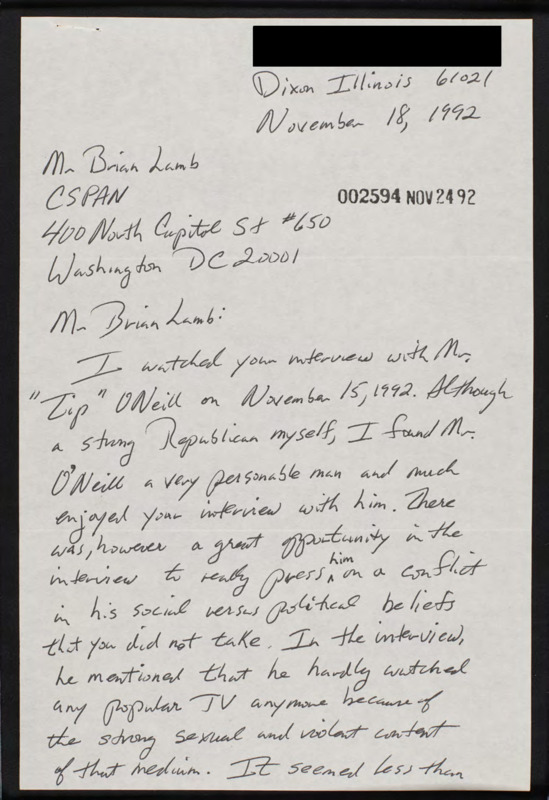 Dixon Illinois 61021
November 18, 1992
Mr Brian Lamb
CSPAN
002594 NOV 24 92
400 North Capitol St #650
Washington DC 20001
Mr Brian Lamb:
I watched your interview with Mr.
"Tip" O'Neill on November 15, 1992. Although
a strong Republican myself, I found Mr.
O'Neill a very personable man and much
enjoyed your interview with him. There
was, however a great opportunity in the
interview to really press him on a conflict
in his social versus political beliefs
that you did not take. In the interview,
he mentioned that he hardly watched
any popular TV anymore because of
the strong sexual and violent content
of that medium. It seemed less than